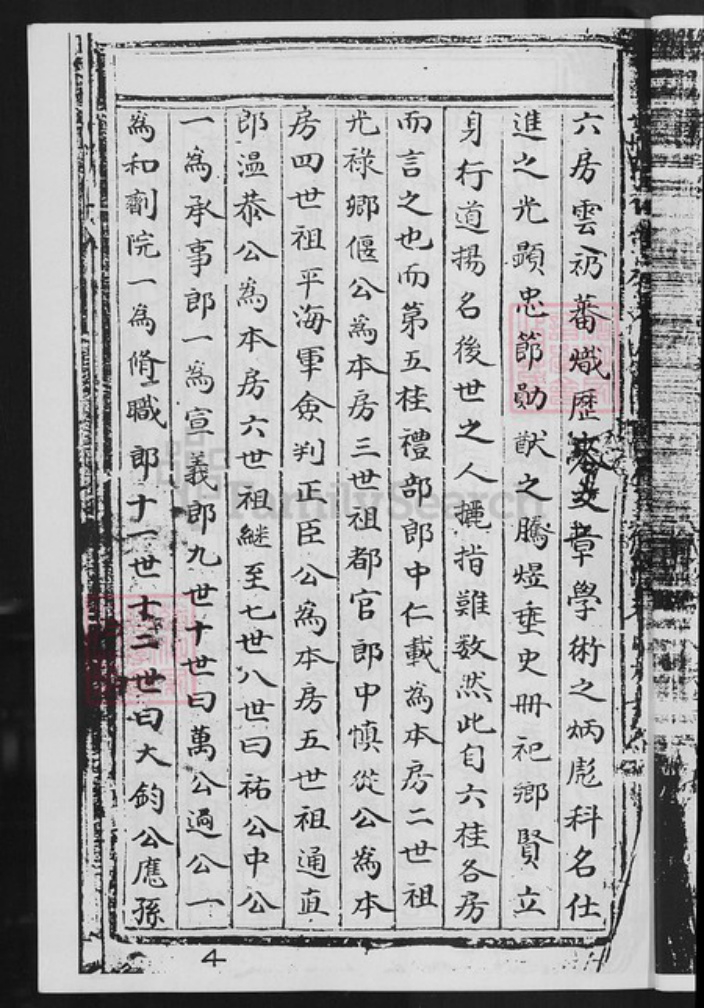 六房雲礽蕃熾歷來文章學術之炳彪科名仕
進之光顯忠節勛猷之騰煜垂史冊祀鄉賢立
身行道揚名後世之人擢指難数然此自六桂各房
而言之也而第五桂禮部郎中仁載為本房二世祖
光祿鄉偃公為本房三世祖都官郎中慎從公為本
房四世祖平海軍僉判正臣公為本房五世祖通直
郎温恭公為本房六世祖繼至七世八世曰祐公中公
一為承事郎一為宣義郎九世十世曰萬公過公一
為和劑院一為脩職郎十一世十二世曰大鈞公應孫
4
FamilySearch